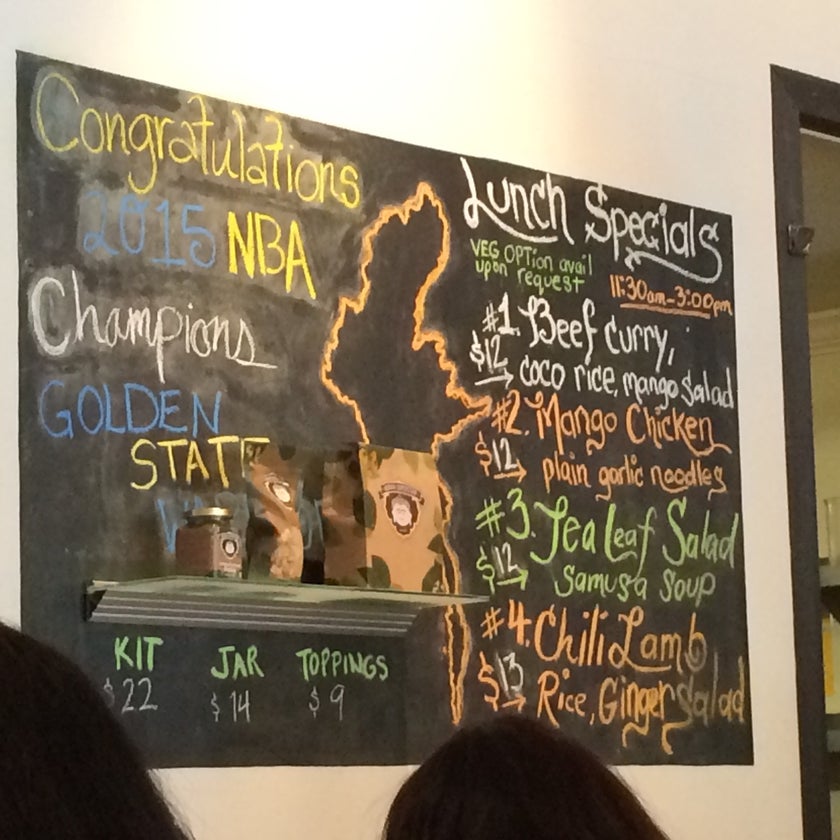 Congratulations
2015 NBA
Champions
GOLDEN
STATE
KIT
$22
JAR
$14
TOPPINGS
$9
Lunch Specials
VEG OPTION avail
upon request
11:30am-3:00pm
#1. Beef Curry,
$12 coco rice, mango salad
#2. Mango Chicken
$12 plain garlic noodles
#3. Tea Leaf Salad
$12 Samusa Soup
#4. Chili Lamb
$13 Rice, Ginger Salad